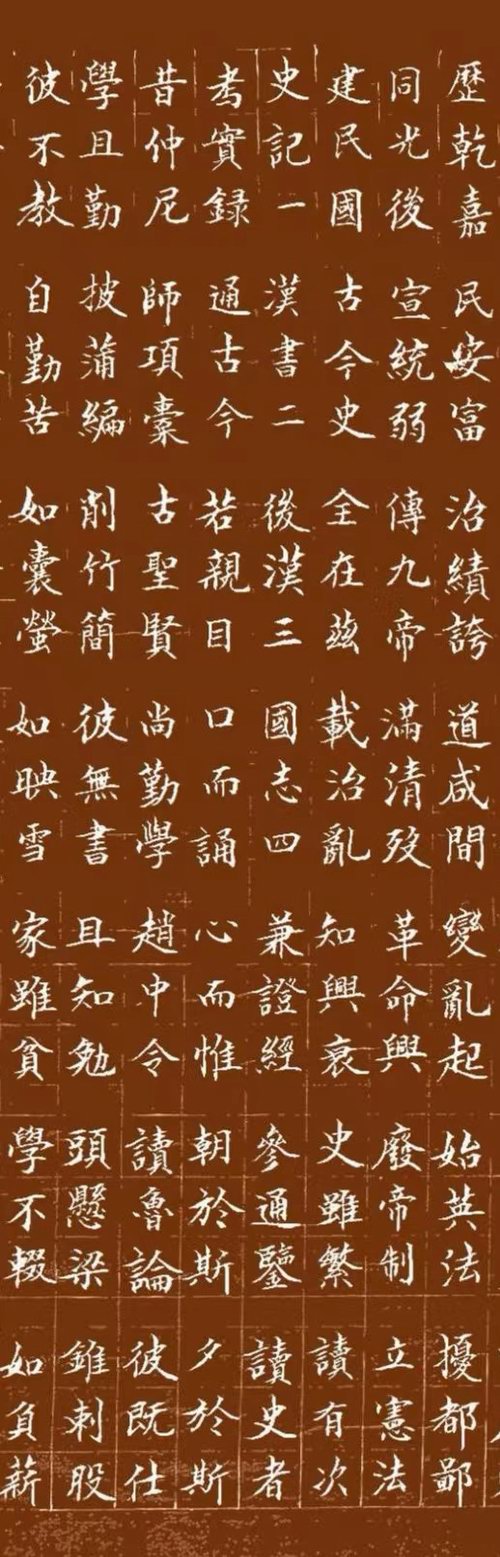 歷乾嘉 民安富 治績誇 道咸間 變亂起 始英法 擾都鄙
同光後 宣統弱 傳九帝 滿清歿 革命興 廢帝制 立憲法
建民國 古今史 全在茲 載治亂 知興衰 史雖繁 讀有次
史記一 漢書二 後漢三 國志四 兼證經 參通鑒 讀史者
考實録 通古今 若親目 口而誦 心而惟 朝於斯 夕於斯
昔仲尼 師項橐 古聖賢 尚勤學 趙中令 讀魯論 彼既仕
學且勤 披蒲編 削竹簡 彼無書 且知勉 頭懸梁 錐刺股
彼不教 自勤苦 如囊螢 如映雪 家雖貧 學不輟 如負薪